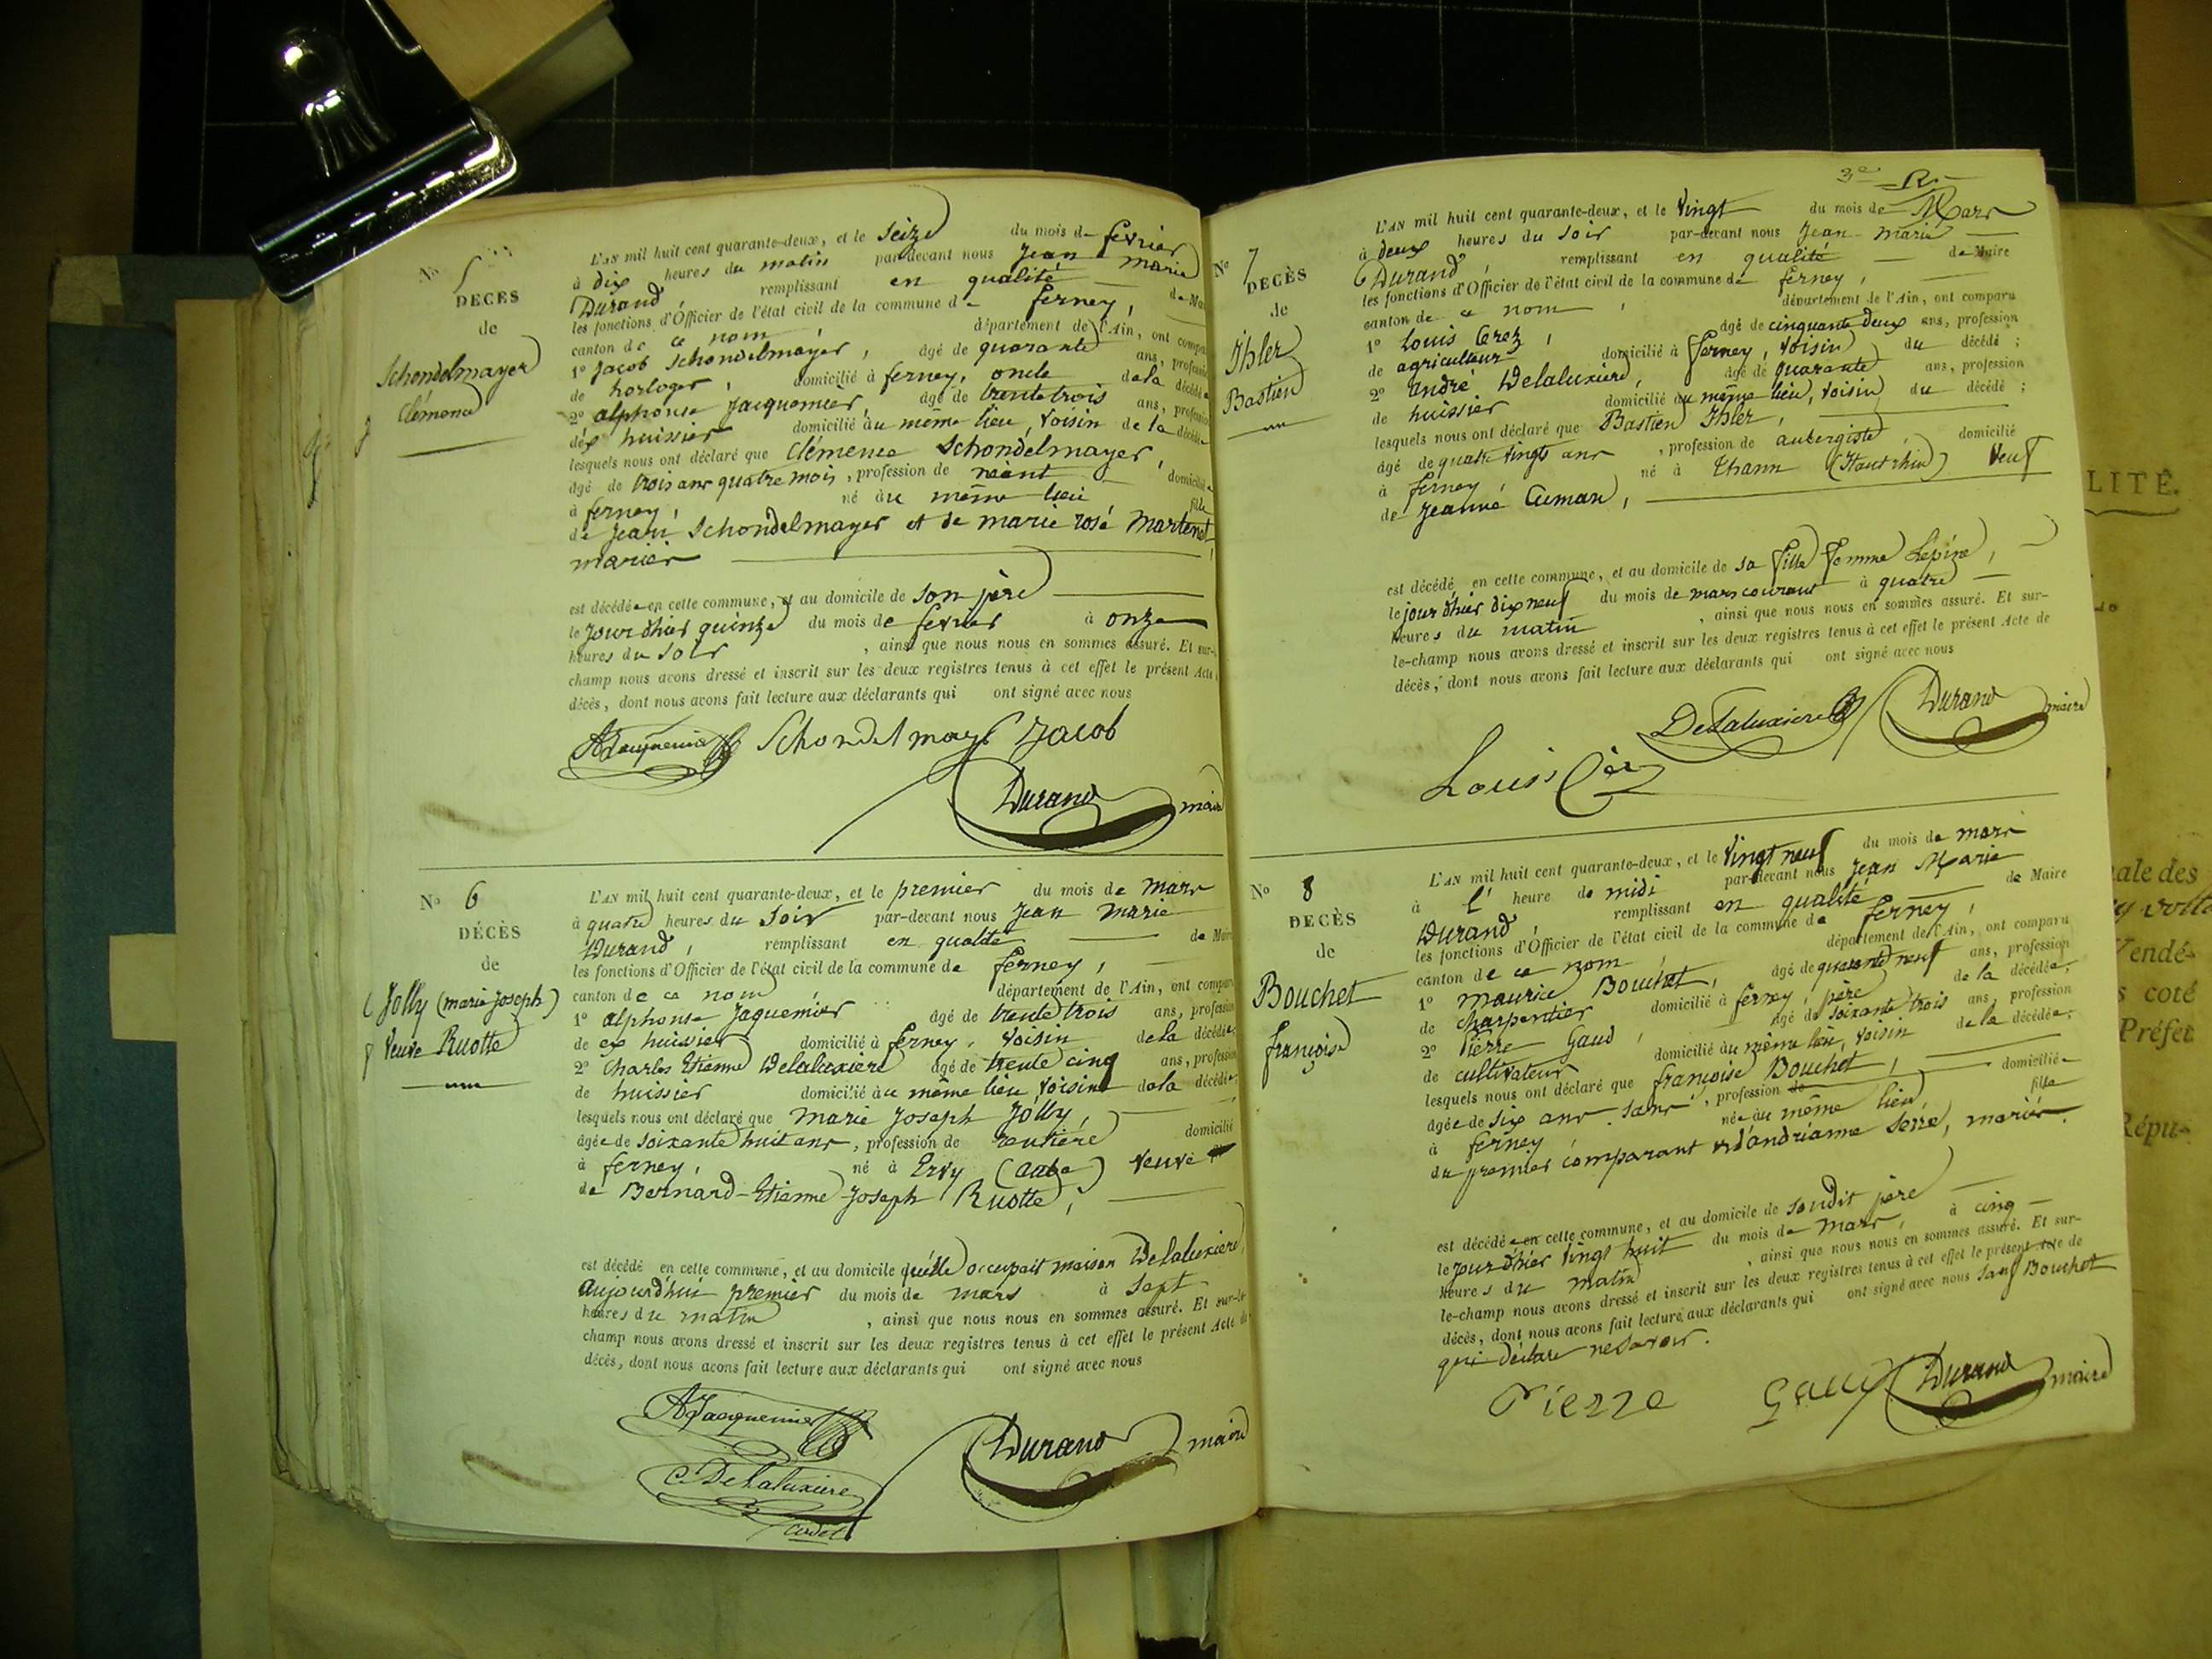 N° 5
DÉCÈS
de
Schondelmayer
Clémence
L'AN mil huit cent quarante-deux, et le seize du mois de fevrier
à dix heures du matin par-devant nous Jean Marie
Durand, remplissant en qualité de Mai
les fonctions d'Officier de l'état civil de la commune de ferney,
canton de ce nom, département de l'Ain, ont compa
1° Jacob Schondelmayer, âgé de quarante ans, profession
de horloger, domicilié à ferney, oncle de la décédée
2° alphonse Jacquemier, âgé de trente trois ans, profession
de ex huissier domicilié au même lieu, voisin de la décédée
lesquels nous ont déclaré que Clémence Schondelmayer,
âgé de trois ans quatre mois, profession de néant domiciliée
à ferney, né au même lieu fille
de Jean Schondelmayer et de marie rose Martenet,
mariés
est décédée en cette commune, et au domicile de son père
le jour d'hier quinze du mois de fevrier à onze
heures du soir, ainsi que nous nous en sommes assuré. Et sur-
champ nous avons dressé et inscrit sur les deux registres tenus à cet effet le présent Acte
décès, dont nous avons fait lecture aux déclarants qui ont signé avec nous
AJacquemier Schondelmayer Jacob
Durand maire
N° 6
DÉCÈS
de
Jolly (marie joseph)
Veuve Ruotte
L'AN mil huit cent quarante-deux, et le premier du mois de mars
à quatre heures du soir par-devant nous Jean Marie
Durand, remplissant en qualité de Maire
les fonctions d'Officier de l'état civil de la commune de ferney,
canton de ce nom département de l'Ain, ont compar
1° alphonse Jaquemier âgé de trente trois ans, profession
de ex huissier domicilié à ferney, voisin de la décédée
2° Charles Etienne Delaluxiere âgé de trente cinq ans, profession
de huissier domicilié au même lieu, voisin de la décédée
lesquels nous ont déclaré que Marie Joseph Jolly,
âgée de soixante huit ans, profession de rentière domicilié
à ferney, né à Ervy (aube) veuve
de Bernard-Etienne Joseph Ruotte,
est décédé en cette commune, et au domicile qu'elle occupait maison Delaluxiere
aujourd'hui premier du mois de mars à sept
heures du matin, ainsi que nous nous en sommes assuré. Et sur-le
champ nous avons dressé et inscrit sur les deux registres tenus à cet effet le présent Acte de
décès, dont nous avons fait lecture aux déclarants qui ont signé avec nous
AJacquemier
Durand maire
C. Delaluxiere
cadet
3e R
N° 7
DÉCÈS
de
Ihler
Bastien
L'AN mil huit cent quarante-deux, et le vingt du mois de Mars
à deux heures du soir par-devant nous Jean Marie
Durand, remplissant en qualité de Maire
les fonctions d'Officier de l'état civil de la commune de ferney,
canton de ce nom, département de l'Ain, ont comparu
1° Louis Crez, âgé de cinquante deux ans, profession
de agriculteur domicilié à ferney, voisin du décédé;
2° André Delaluxiere, âgé de quarante ans, profession
de huissier domicilié au même lieu, voisin du décédé;
lesquels nous ont déclaré que Bastien Ihler,
âgé de quatre vingts ans, profession de aubergiste, domicilié
à ferney, né à Thann (Haut rhin) veuf
de Jeanne Cuman,
est décédé en cette commune, et au domicile de sa fille femme Lépine,
le jour d'hier dix neuf du mois de mars courant à quatre
heures du matin, ainsi que nous nous en sommes assuré. Et sur-
le-champ nous avons dressé et inscrit sur les deux registres tenus à cet effet le présent Acte de
décès, dont nous avons fait lecture aux déclarants qui ont signé avec nous
Delaluxiere Durand maire
Louis
N° 8
DÉCÈS
de
Bouchet
françoise
L'AN mil huit cent quarante-deux, et le vingt neuf du mois de mars
à l' heure de midi par-devant nous Jean Marie
Durand, remplissant en qualité de Maire
les fonctions d'Officier de l'état civil de la commune de ferney,
canton de ce nom, département de l'Ain, ont comparu
1° Maurice Bouchet, âgé de quarante neuf ans, profession
de charpentier domicilié à ferney, père de la décédée;
2° Pierre Gaud, âgé de soixante trois ans, profession
de cultivateur domicilié au même lieu, voisin de la décédée;
lesquels nous ont déclaré que françoise Bouchet,
âgée de six ans sans, profession de domiciliée
à ferney née au même lieu, fille
du premier comparant et d'andrianne Serre, mariés.
est décédée en cette commune, et au domicile de sondit père
le jour d'hier vingt huit du mois de mars, à cinq
heures du matin, ainsi que nous nous en sommes assuré. Et sur-
le-champ nous avons dressé et inscrit sur les deux registres tenus à cet effet le présent Acte de
décès, dont nous avons fait lecture aux déclarants qui ont signé avec nous sauf Bouchet
qui déclare ne savoir.
Pierre Gaud Durand maire
LITÉ.
ale des
Vendé-
s coté
Préfet
Répu-